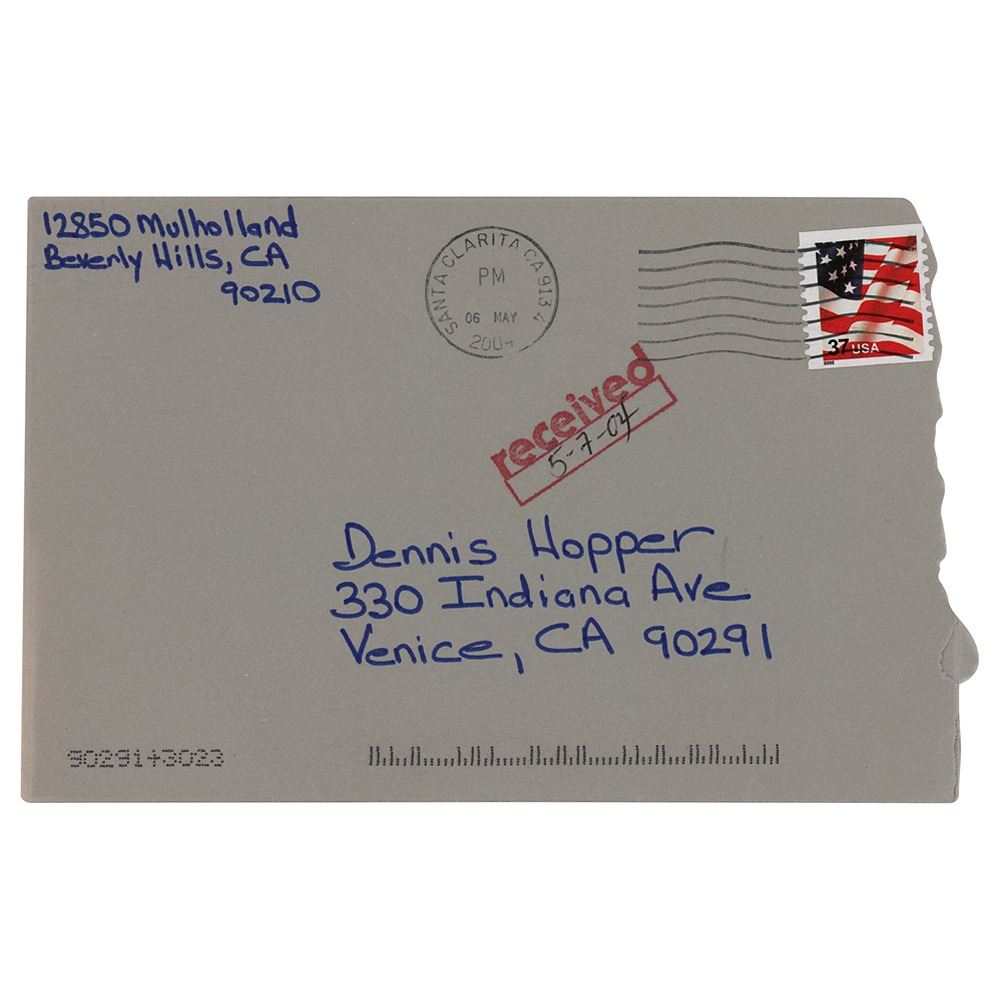 12850 Mulholland
Beverly Hills, CA
90210
SANTA CLARITA CA 913
PM
06 MAY
2004
37 USA
2002
received
5-7-04
Dennis Hopper
330 Indiana Ave
Venice, CA 90291
90291+3023